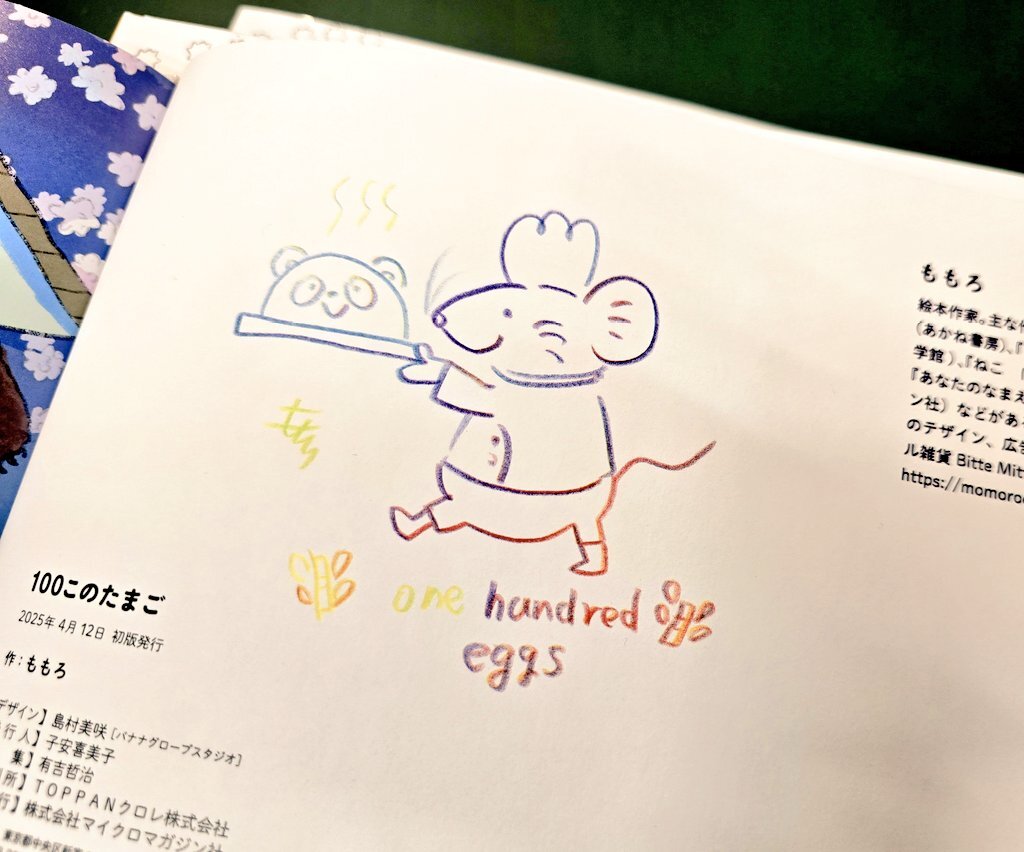 one hundred
eggs
ももろ
絵本作家。主な
（あかね書房）、『
学館）、『ねこ
『あなたのなまえ
ン社）などがあ
のデザイン、広
ル雑貨 Bitte Mit
https://momoro
100このたまご
2025年4月12日 初版発行
作：ももろ
デザイン】島村美咲［バナナグローブスタジオ］
行人】子安喜美子
集】有吉哲治
所】TOPPANクロレ株式会社
行】株式会社マイクロマガジン社